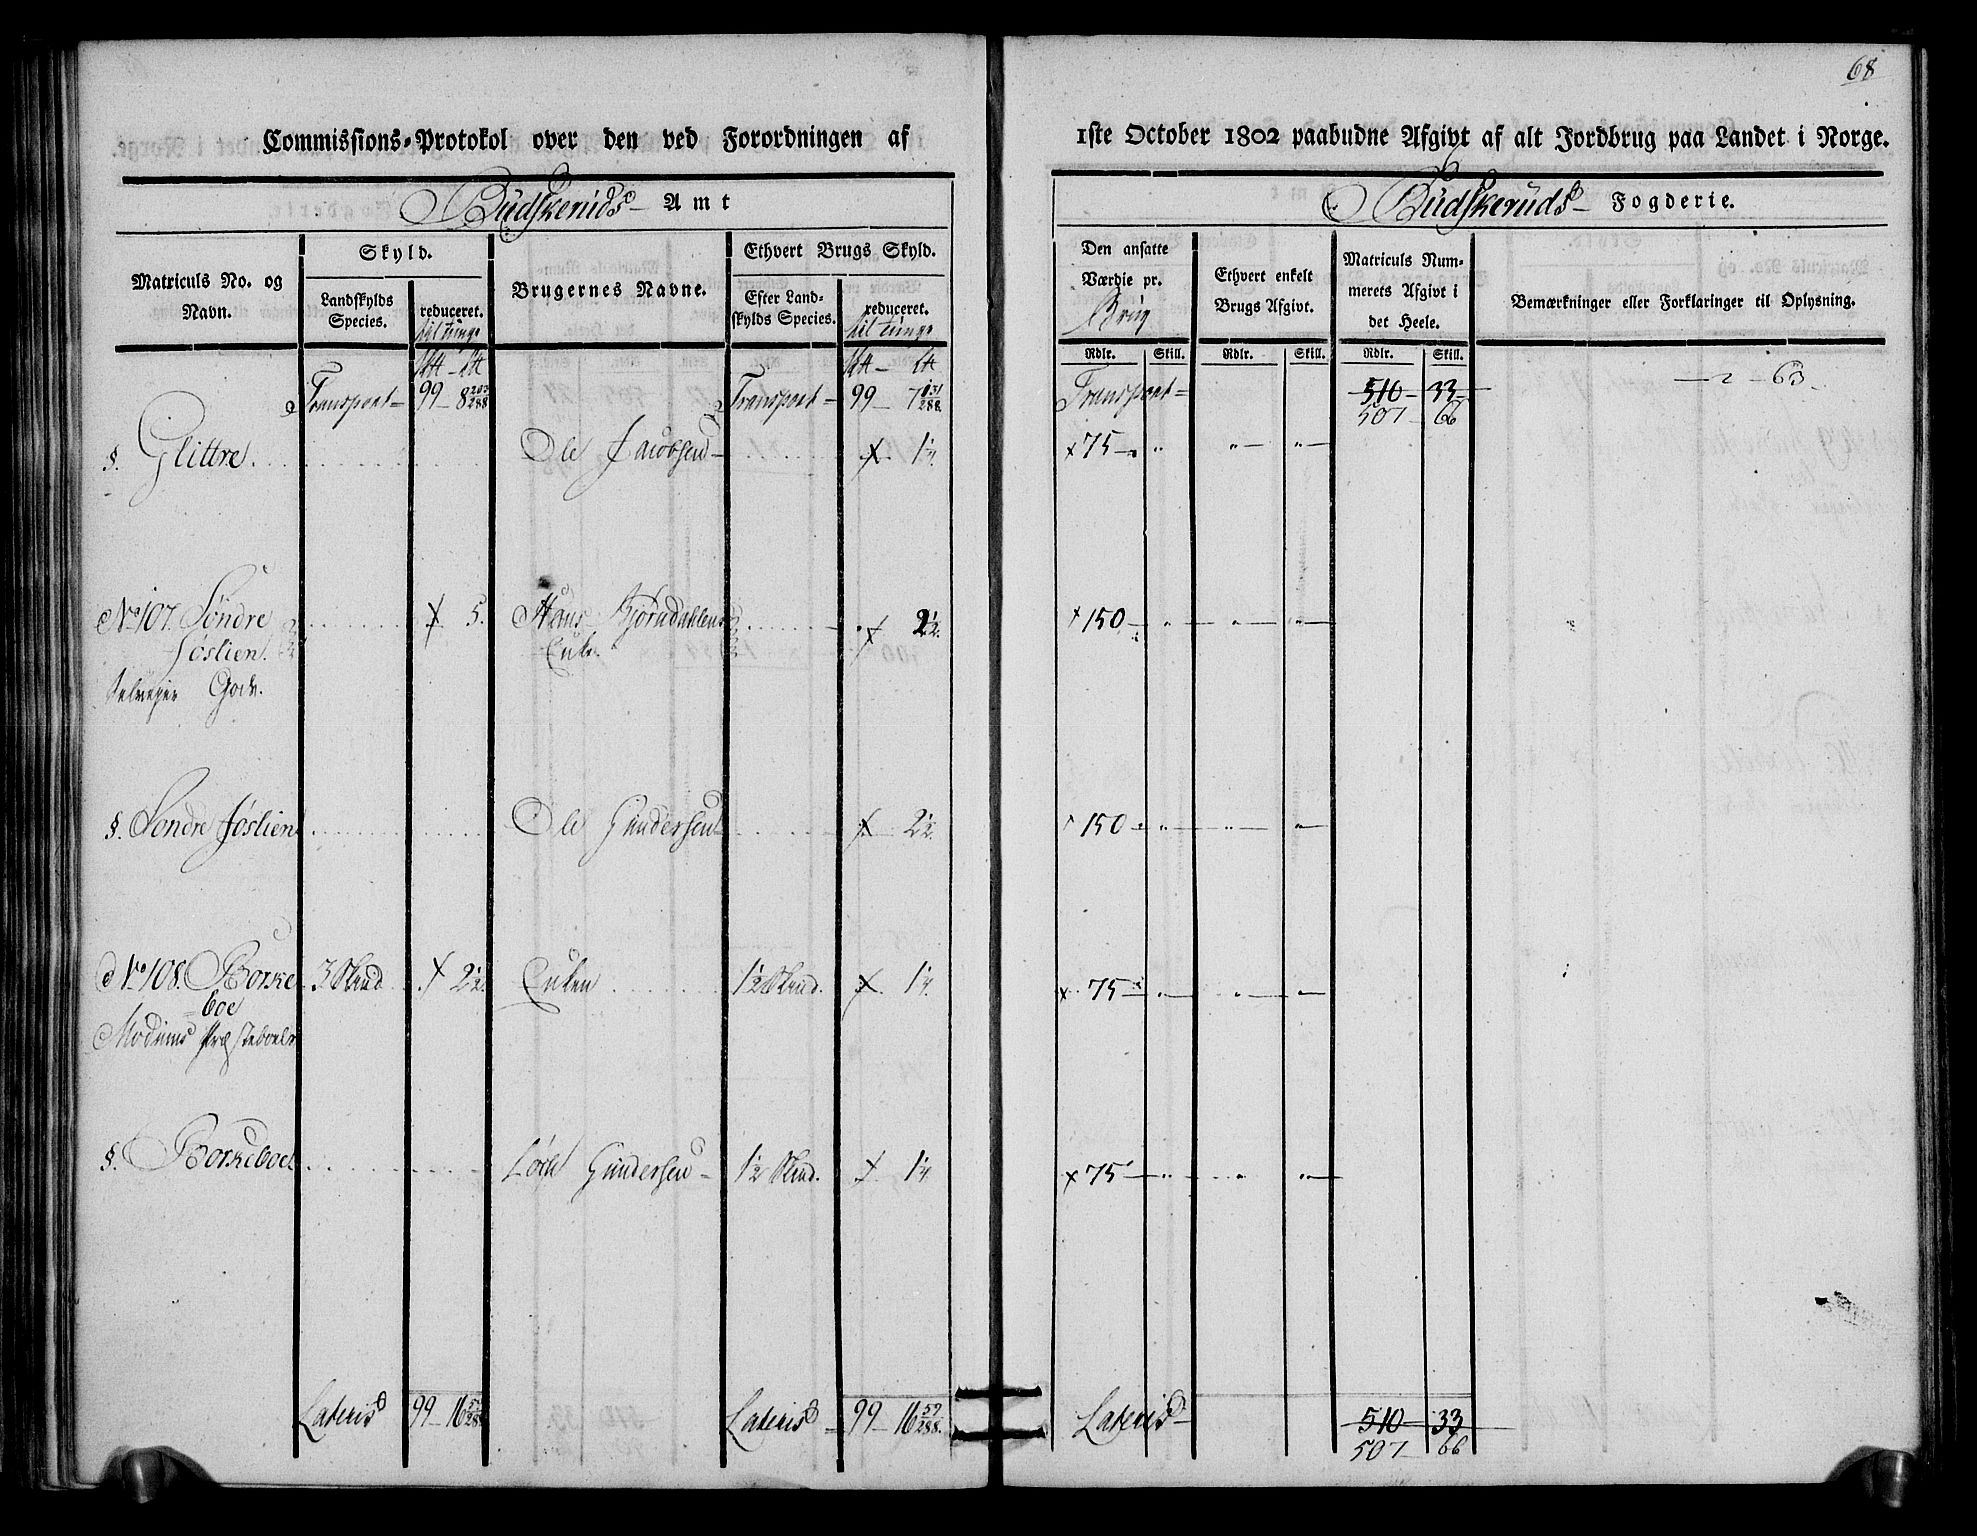 68
Commissions-Protokol over den ved Forordningen af 1ste October 1802 paabudne Afgivt af alt Jordbrug paa Landet i Norge.
Budskeruds Amt
Budskeruds Fogderie.
Matriculs No. og Navn.
Skyld.
Landskylds Species.
reduceret. til tunge
Brugernes Navne.
Ethvert Brugs Skyld.
Efter Landskylds Species.
reduceret. til tunge
Den ansatte Værdie pr. Brug
Ethvert enkelt Brugs Afgivt.
Matriculs Nummerets Afgivt i det Heele.
Bemærkninger eller Forklaringer til Oplysning.
Rdlr. Skill. Rdlr. Skill. Rdlr. Skill.
Transport 99 – 8 203/288 Transport – 99 – 7 131/288 Transport – 510 – 33 – 2 – 63
507 66
§. Glittre Ole Jacobsen – x 1¼. x 75 – „ „ „
No 107. Søndre x 5. Hans Bjørndahlens x 2½. x 150 – „ „ „
Jøslien. Enke
Selvejer Gods.
§. Søndre Jøslien Ole Gundersen x 2½. 150 – „ „ „
No 108. Borke 3 Skind x 2½. Enken 1½ Skind. x 1¼. x 75 – „ „ „
boe
Modums Præsteboele
§. Borkeboe Gundersen – 1½ Skind. x 1¼ x 75 – „ „ „
Lateris 99 – 16 59/288 Lateris – 99 – 16 59/288. Lateris – 510 – 33
507 66